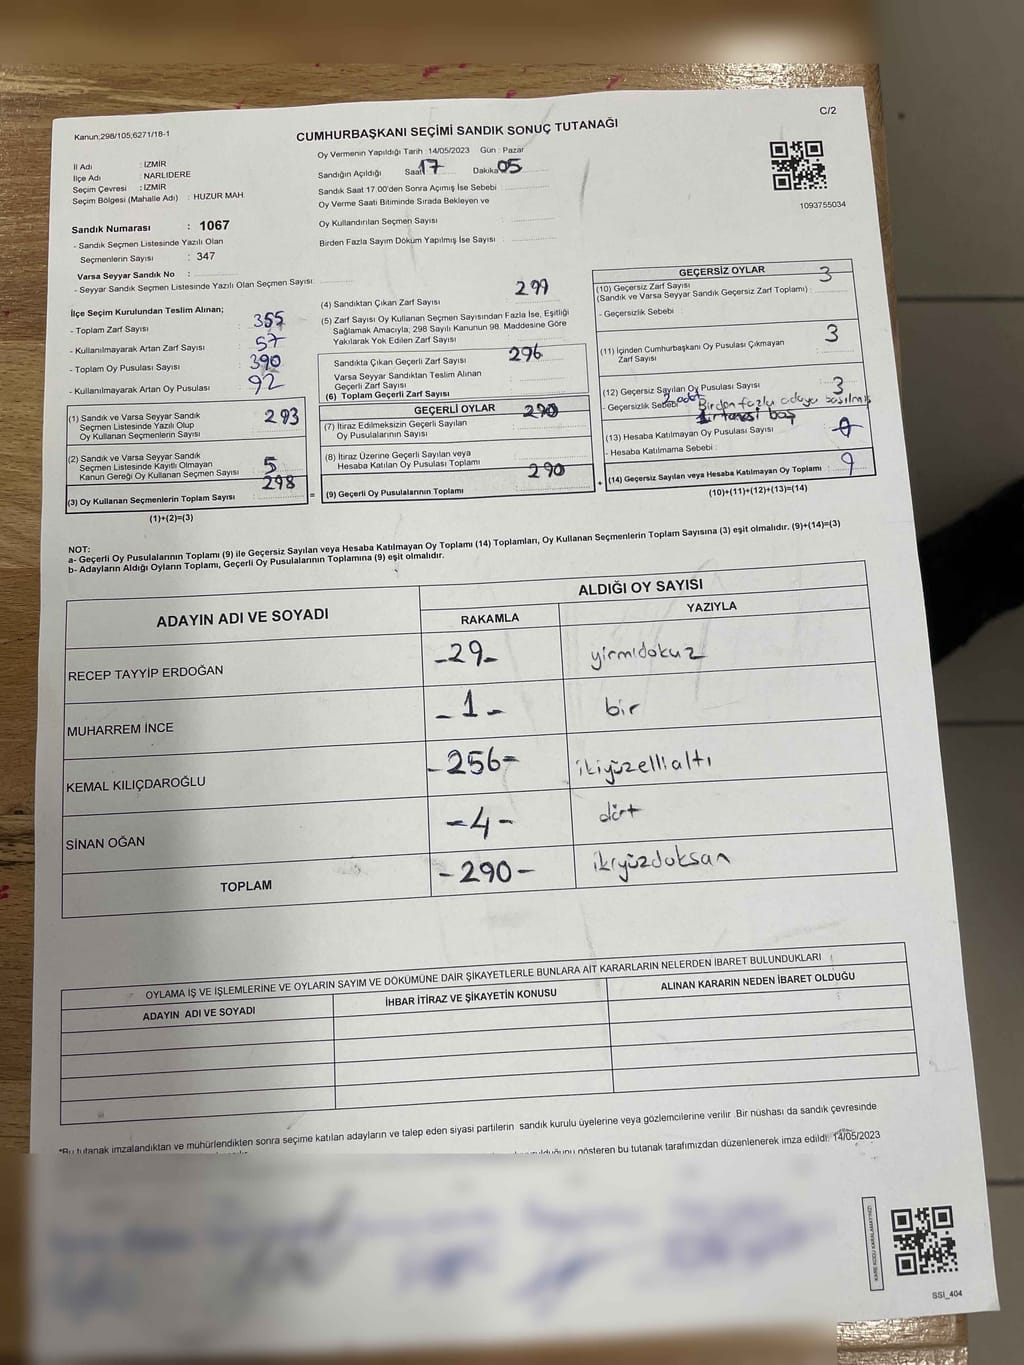 C/2
Kanun;298/105;6271/18-1
CUMHURBAŞKANI SEÇİMİ SANDIK SONUÇ TUTANAĞI
İl Adı : İZMİR
İlçe Adı : NARLIDERE
Seçim Çevresi : İZMİR
Seçim Bölgesi (Mahalle Adı) : HUZUR MAH.
Sandık Numarası : 1067
- Sandık Seçmen Listesinde Yazılı Olan
Seçmenlerin Sayısı : 347
Varsa Seyyar Sandık No :
- Seyyar Sandık Seçmen Listesinde Yazılı Olan Seçmen Sayısı:
Oy Vermenin Yapıldığı Tarih :14/05/2023 Gün : Pazar
Sandığın Açıldığı Saat 17 Dakika 05
Sandık Saat 17.00'den Sonra Açımış İse Sebebi :
Oy Verme Saati Bitiminde Sırada Bekleyen ve
Oy Kullandırılan Seçmen Sayısı :
Birden Fazla Sayım Döküm Yapılmış İse Sayısı :
1093755034
İlçe Seçim Kurulundan Teslim Alınan;
- Toplam Zarf Sayısı : 355
- Kullanılmayarak Artan Zarf Sayısı : 57
- Toplam Oy Pusulası Sayısı : 390
- Kullanılmayarak Artan Oy Pusulası : 92
(1) Sandık ve Varsa Seyyar Sandık
Seçmen Listesinde Yazılı Olup
Oy Kullanan Seçmenlerin Sayısı : 293
(2) Sandık ve Varsa Seyyar Sandık
Seçmen Listesinde Kayıtlı Olmayan
Kanun Gereği Oy Kullanan Seçmen Sayısı : 5
(3) Oy Kullanan Seçmenlerin Toplam Sayısı : 298
(1)+(2)=(3)
(4) Sandıktan Çıkan Zarf Sayısı : 299
(5) Zarf Sayısı Oy Kullanan Seçmen Sayısından Fazla İse, Eşitliği
Sağlamak Amacıyla; 298 Sayılı Kanunun 98. Maddesine Göre
Yakılarak Yok Edilen Zarf Sayısı :
Sandıkta Çıkan Geçerli Zarf Sayısı : 296
Varsa Seyyar Sandıktan Teslim Alınan
Geçerli Zarf Sayısı :
(6) Toplam Geçerli Zarf Sayısı :
GEÇERLİ OYLAR
290
(7) İtiraz Edilmeksizin Geçerli Sayılan
Oy Pusulalarının Sayısı :
(8) İtiraz Üzerine Geçerli Sayılan veya
Hesaba Katılan Oy Pusulası Toplamı :
(9) Geçerli Oy Pusulalarının Toplamı : 290
GEÇERSİZ OYLAR
(10) Geçersiz Zarf Sayısı 3
(Sandık ve Varsa Seyyar Sandık Geçersiz Zarf Toplamı) :
- Geçersizlik Sebebi :
(11) İçinden Cumhurbaşkanı Oy Pusulası Çıkmayan
Zarf Sayısı : 3
(12) Geçersiz Sayılan Oy Pusulası Sayısı : 3
- Geçersizlik Sebebi : 2 adet Birden fazla adaya basılmış
1 tanesi boş
(13) Hesaba Katılmayan Oy Pusulası Sayısı : 0
- Hesaba Katılmama Sebebi :
(14) Geçersiz Sayılan veya Hesaba Katılmayan Oy Toplamı : 9
(10)+(11)+(12)+(13)=(14)
NOT:
a- Geçerli Oy Pusulalarının Toplamı (9) ile Geçersiz Sayılan veya Hesaba Katılmayan Oy Toplamı (14) Toplamları, Oy Kullanan Seçmenlerin Toplam Sayısına (3) eşit olmalıdır. (9)+(14)=(3)
b- Adayların Aldığı Oyların Toplamı, Geçerli Oy Pusulalarının Toplamına (9) eşit olmalıdır.
ADAYIN ADI VE SOYADI
ALDIĞI OY SAYISI
RAKAMLA YAZIYLA
RECEP TAYYİP ERDOĞAN -29- yirmidokuz
MUHARREM İNCE -1- bir
KEMAL KILIÇDAROĞLU -256- ikiyüzellialtı
SİNAN OĞAN -4- dört
TOPLAM -290- ikiyüzdoksan
OYLAMA İŞ VE İŞLEMLERİNE VE OYLARIN SAYIM VE DÖKÜMÜNE DAİR ŞİKAYETLERLE BUNLARA AİT KARARLARIN NELERDEN İBARET BULUNDUKLARI
ADAYIN ADI VE SOYADI İHBAR İTİRAZ VE ŞİKAYETİN KONUSU ALINAN KARARIN NEDEN İBARET OLDUĞU
*Bu tutanak imzalandıktan ve mühürlendikten sonra seçime katılan adayların ve talep eden siyasi partilerin sandık kurulu üyelerine veya gözlemcilerine verilir .Bir nüshası da sandık çevresinde
gösteren bu tutanak tarafımızdan düzenlenerek imza edildi. 14/05/2023
KARE KODU KARALAMAYINIZ!
SSI_404